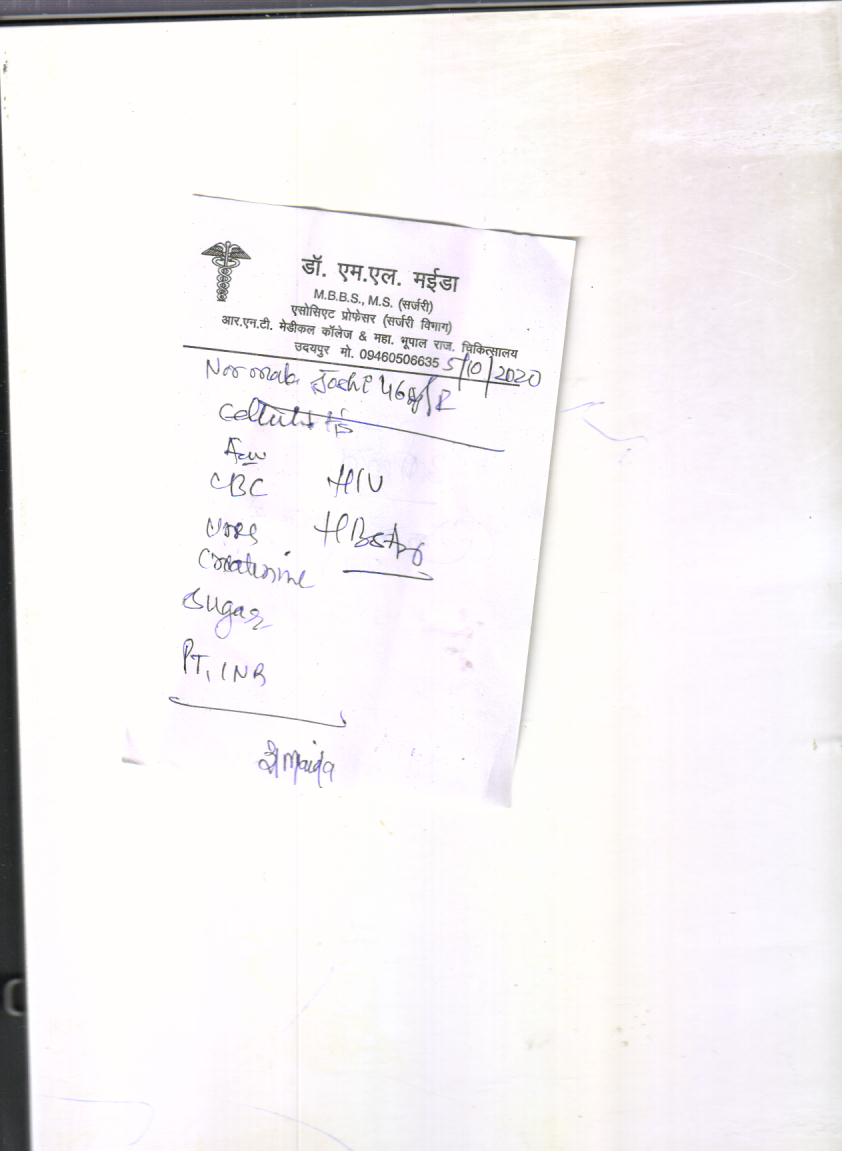 डॉ. एम.एल. मईडा
M.B.B.S., M.S. (सर्जरी)
एसोसिएट प्रोफेसर (सर्जरी विभाग)
आर.एन.टी. मेडीकल कॉलेज & महा. भूपाल राज. चिकित्सालय
उदयपुर मो. 09460506635 5/10/2020
Joshi 46
Cellulitis
CBC HIV
HBsAg
Creatinine
Sugar
PT, INR
Maida